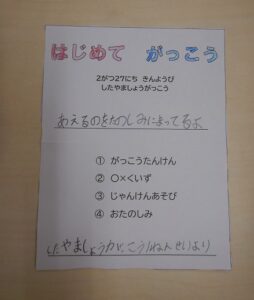 はじめて がっこう
2がつ27にち きんようび
したやましょうがっこう
あえるのをたのしみにまってるよ
① がっこうたんけん
② 〇×くいず
③ じゃんけんあそび
④ おたのしみ
したやましょうがっこう1ねんせいより